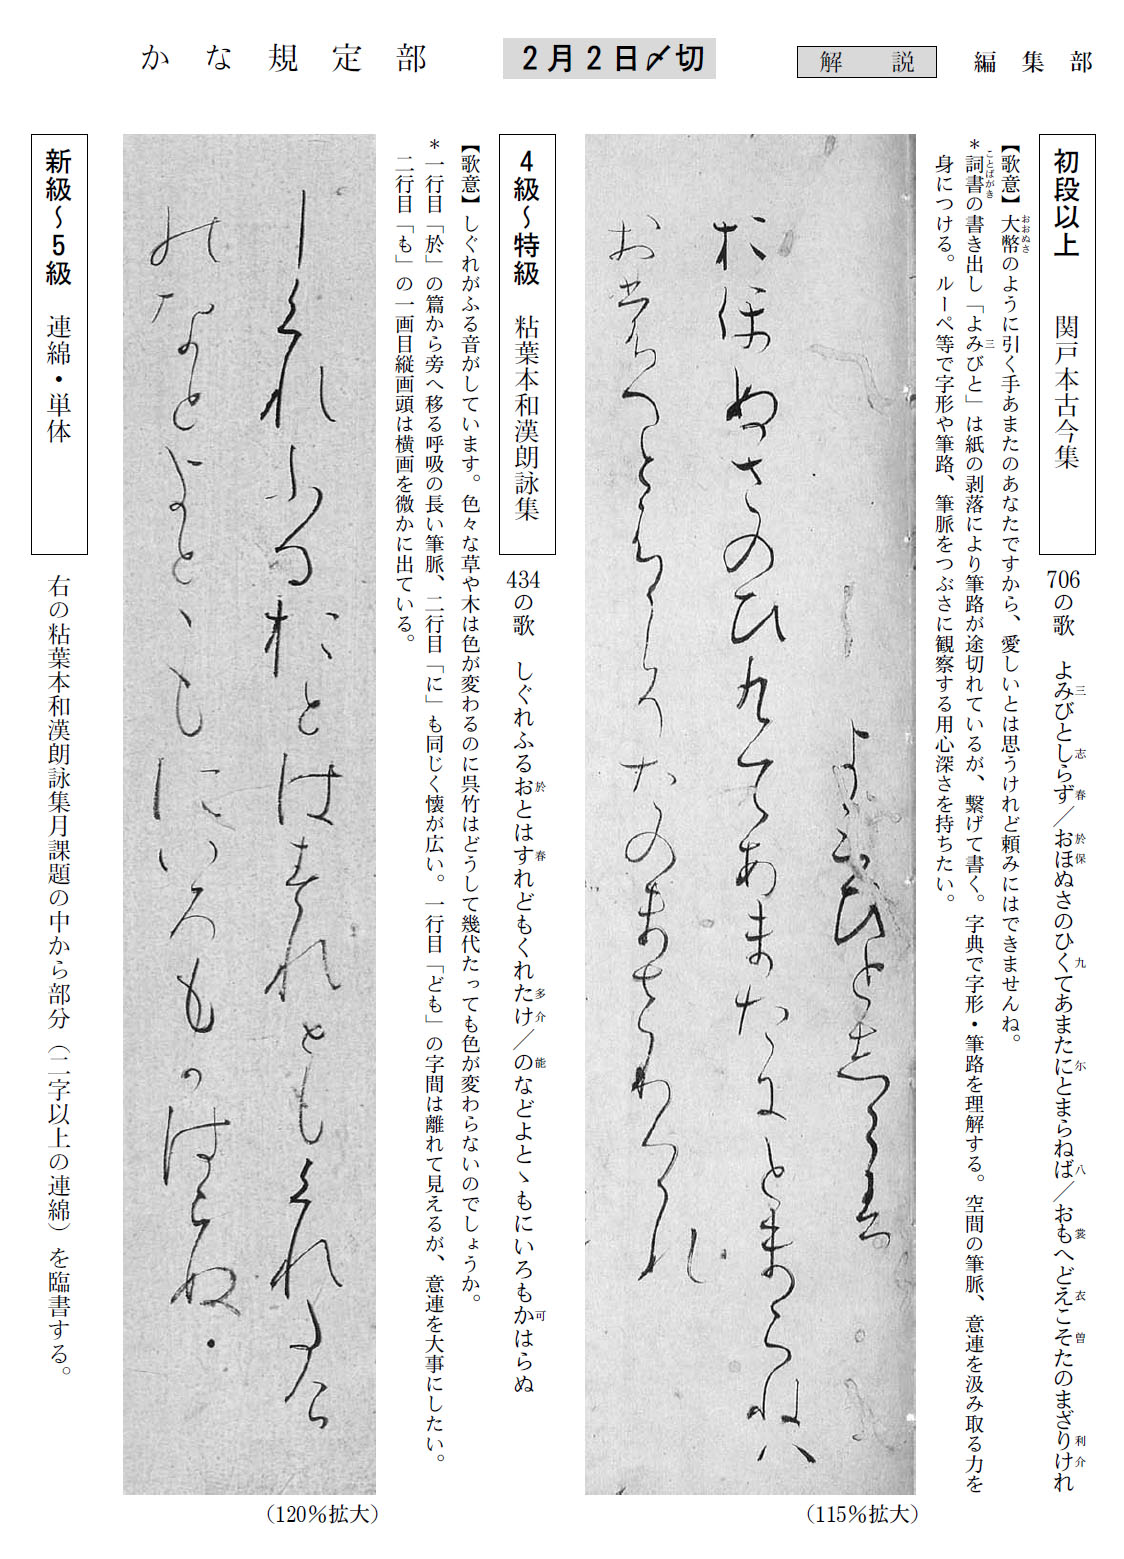 かな規定部
2月2日〆切
解説
編集部
初段以上 関戸本古今集
706の歌 よみびとしらず／おほぬさのひくてあまたにとまらねば／おもへどえこそたのまざりけれ
三 志 春 於 保 九 尓 八 裳 衣 曽 利 介
【歌意】大幣のように引く手あまたのあなたですから、愛しいとは思うけれど頼みにはできませんね。
おおぬさ
＊詞書の書き出し「よみびと」は紙の剥落により筆路が途切れているが、繋げて書く。字典で字形・筆路を理解する。空間の筆脈、意連を汲み取る力を
ことばがき 三
身につける。ルーペ等で字形や筆路、筆脈をつぶさに観察する用心深さを持ちたい。
よみひとしらす
おほぬさのひくてあまたにとまらねは
おもへとえこそたのまさりけれ
（115％拡大）
4級～特級 粘葉本和漢朗詠集
434の歌 しぐれふるおとはすれどもくれたけ／のなどよとゝもにいろもかはらぬ
於 春 多 介 能 可
【歌意】しぐれがふる音がしています。色々な草や木は色が変わるのに呉竹はどうして幾代たっても色が変わらないのでしょうか。
＊一行目「於」の篇から旁へ移る呼吸の長い筆脈、二行目「に」も同じく懐が広い。一行目「ども」の字間は離れて見えるが、意連を大事にしたい。
二行目「も」の一画目縦画頭は横画を微かに出ている。
しくれふるおとはすれともくれたけ
のなとよとゝもにいろもかはらぬ
（120％拡大）
新級～5級 連綿・単体
右の粘葉本和漢朗詠集月課題の中から部分（二字以上の連綿）を臨書する。